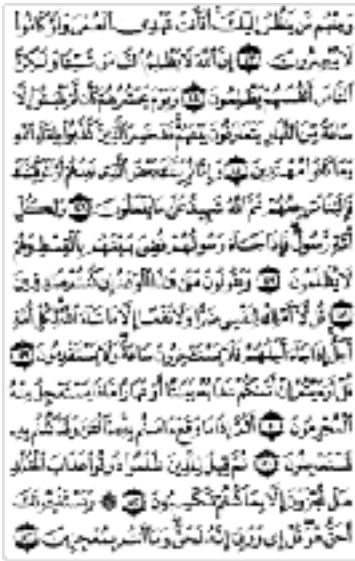 ومنهم من ينظر إليك أفأنت تهدي العمي ولو كانوا
لا يبصرون ٤٣ إن الله لا يظلم الناس شيئا ولكن
الناس أنفسهم يظلمون ٤٤ ويوم يحشرهم كأن لم يلبثوا إلا
ساعة من النهار يتعارفون بينهم قد خسر الذين كذبوا بلقاء الله
وما كانوا مهتدين ٤٥ وإما نرينك بعض الذي نعدهم أو نتوفينك
فإلينا مرجعهم ثم الله شهيد على ما يفعلون ٤٦ ولكل
أمة رسول فإذا جاء رسولهم قضي بينهم بالقسط وهم
لا يظلمون ٤٧ ويقولون متى هذا الوعد إن كنتم صادقين
٤٨ قل لا أملك لنفسي ضرا ولا نفعا إلا ما شاء الله لكل أمة
أجل إذا جاء أجلهم فلا يستأخرون ساعة ولا يستقدمون ٤٩
قل أرأيتم إن أتاكم عذابه بياتا أو نهارا ماذا يستعجل منه
المجرمون ٥٠ أثم إذا ما وقع آمنتم به آلآن وقد كنتم به
تستعجلون ٥١ ثم قيل للذين ظلموا ذوقوا عذاب الخلد
هل تجزون إلا بما كنتم تكسبون ٥٢ ۞ ويستنبئونك
أحق هو قل إي وربي إنه لحق وما أنتم بمعجزين ٥٣